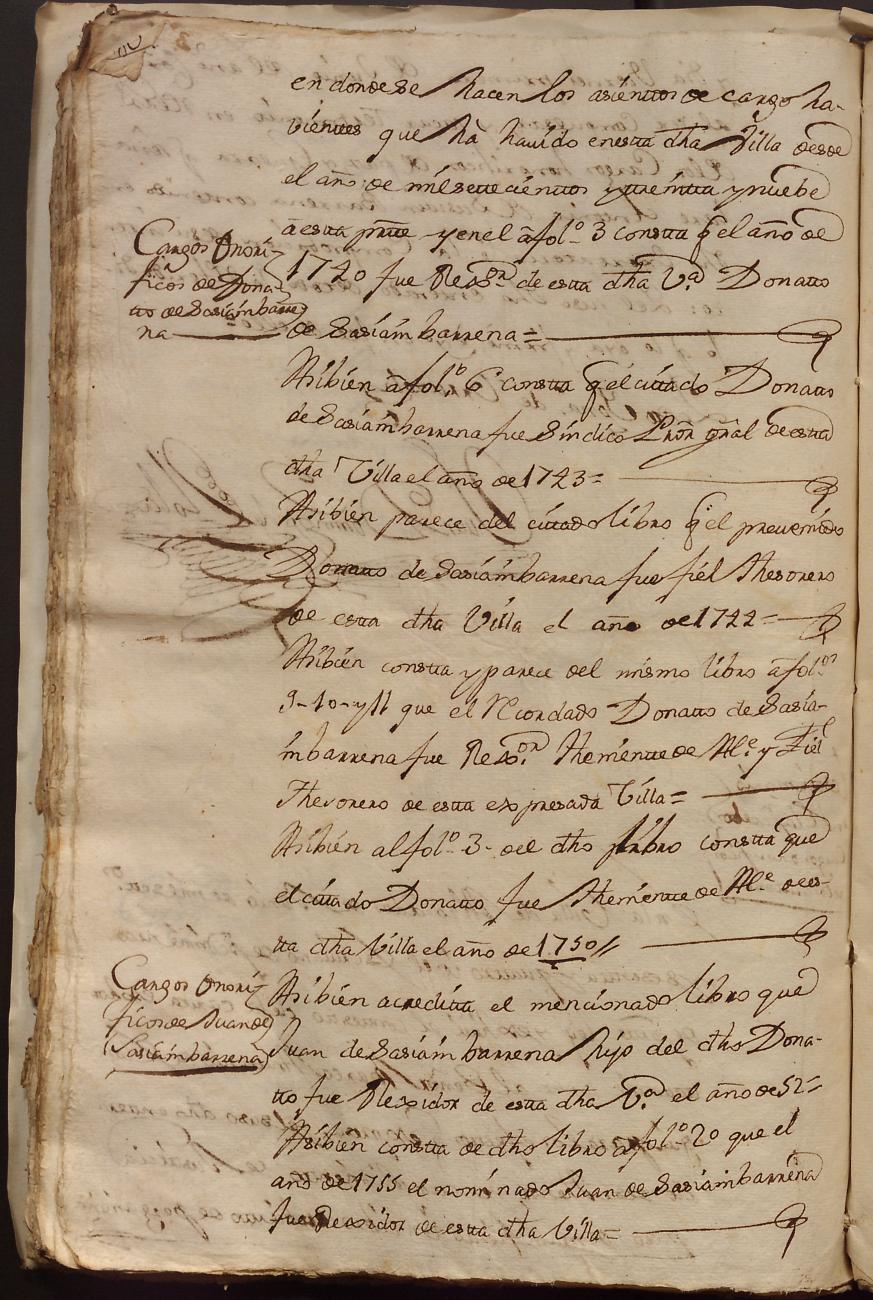 en donde se hacen los asienttos de cargo ha-
vientes que hà havido en estta dha Villa desde
el año de mil sette cienttos y treintta y nuebe
à esta partte y en el àfolº 3 constta q el año de
Cargos Onorí-
ficos de Dona-
tto de Sasiambarre
na
1740 fue Rexᵒʳ de estta dha Vª Donatto
de Sasiambarrena =
Asibien àfolº 6 constta q el cittado Donatto
de Sasiambarrena fue Sindico Prõr gñal de estta
dha Villa el año de 1743 =
Asibien parece del cittado libro q el prevenido
Donatto de Sasiambarrena fue fiel thesorero
de estta dha Villa el año de 1744 =
Asibien constta y parece del mismo libro àfolᵒˢ
9-10-y 11 que el Rcordado Donatto de Sasia-
mbarrena fue Rexᵒʳ thenientte de Alᵉ y Fiel
Thesorero de estta expresada Villa =
Asibien al folº 3- del dho libro constta que
el cittado Donatto fue thenientte de Alᵉ de es-
tta dha Villa el año de 1750//
Cargos Onorí-
ficos de Juan de
Sasiambarrena
Asibien acreditta el mencionado libro que
Juan de Sasiambarrena hijo del dho Dona-
tto fue Rexidor de esta dha Vª el año de 52=
Asibien constta de dho libro àfolº 20 que el
año de 1755 el nominado Juan de Sasiambarrena
fue Rexidor de estta dha Villa =